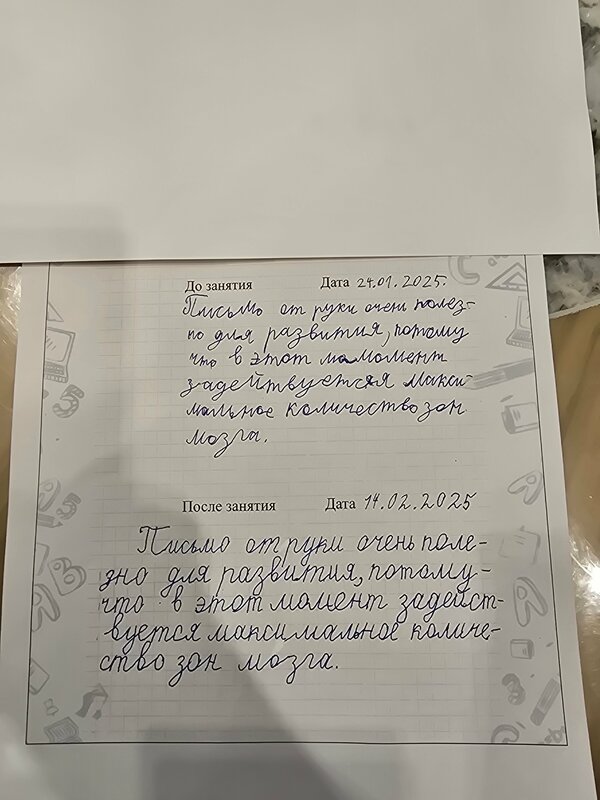 До занятия Дата 24.01.2025.
Письмо от руки очень полез-
но для развития, потому
что в этот мамомент
задействуется макси-
мальное количество зон
мозга.
После занятия Дата 14.02.2025
Письмо от руки очень поле-
зно для развития, потому-
что в этот момент задейст-
вуется максимальное количе-
ство зон мозга.